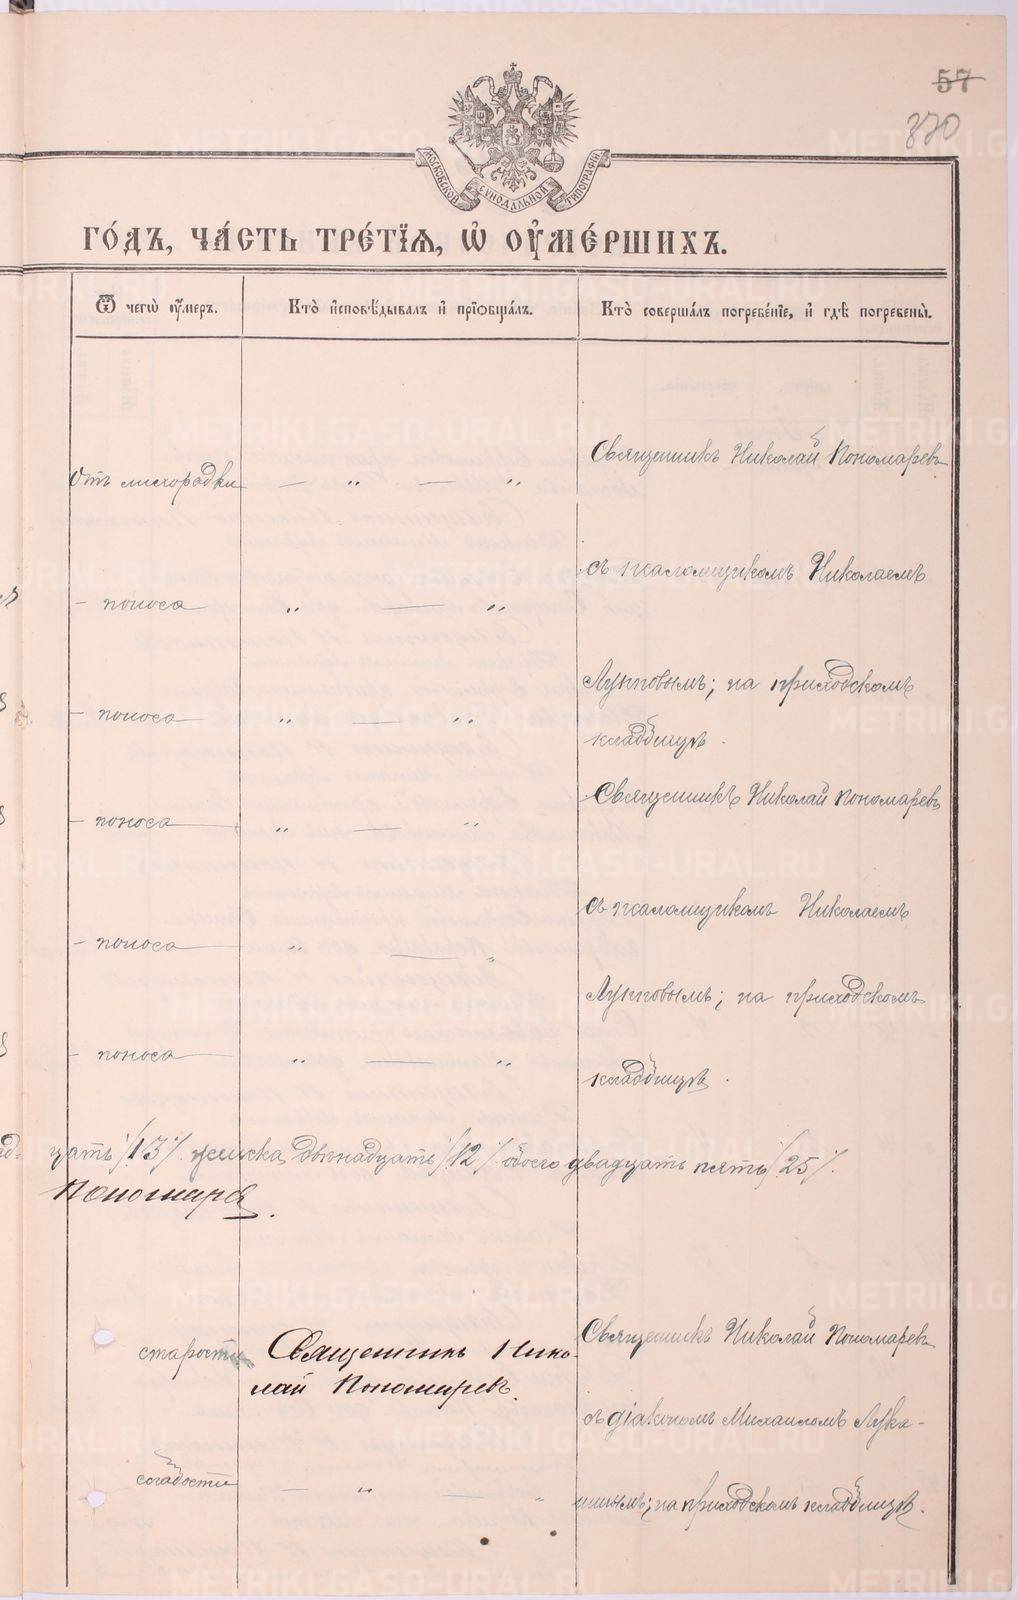 57
370
МОСКОВСКОЙ СѴНОДАЛЬНОЙ ТИПОГРАФІИ
ГО́ДЪ, ЧА́СТЬ ТРЕ́ТІѦ, Ѡ҆ ОУ҆МЕ́РШИХЪ.
Ѿ чегѡ̀ оу҆́меръ.
Кто̀ и҆сповѣ́дывалъ и҆ прїѡбща́лъ.
Кто̀ соверша́лъ погребе́нїе, и҆ гдѣ̀ погребены̀.
Священникъ Николай Пономаревъ
Отъ лихорадки — „ — „
съ псаломщикомъ Николаемъ
- поноса „ — „
Лупповымъ; на приходскомъ
- поноса „ — „
кладбищѣ.
Священникъ Николай Пономаревъ
- поноса „ — „
съ псаломщикомъ Николаемъ
- поноса „ — „
Лупповымъ; на приходскомъ
- поноса „ — „
кладбищѣ.
цать /13/. женска двѣнадцать /12/. обоего двадцать пять /25/.
Пономарев.
Священникъ Николай Пономаревъ
старости Священникъ Нико-
лай Пономаревъ.
съ діакономъ Михаиломъ Лука-
слабости — „ — „
нинымъ; на приходскомъ кладбищѣ.
METRIKI.GASO-URAL.RU